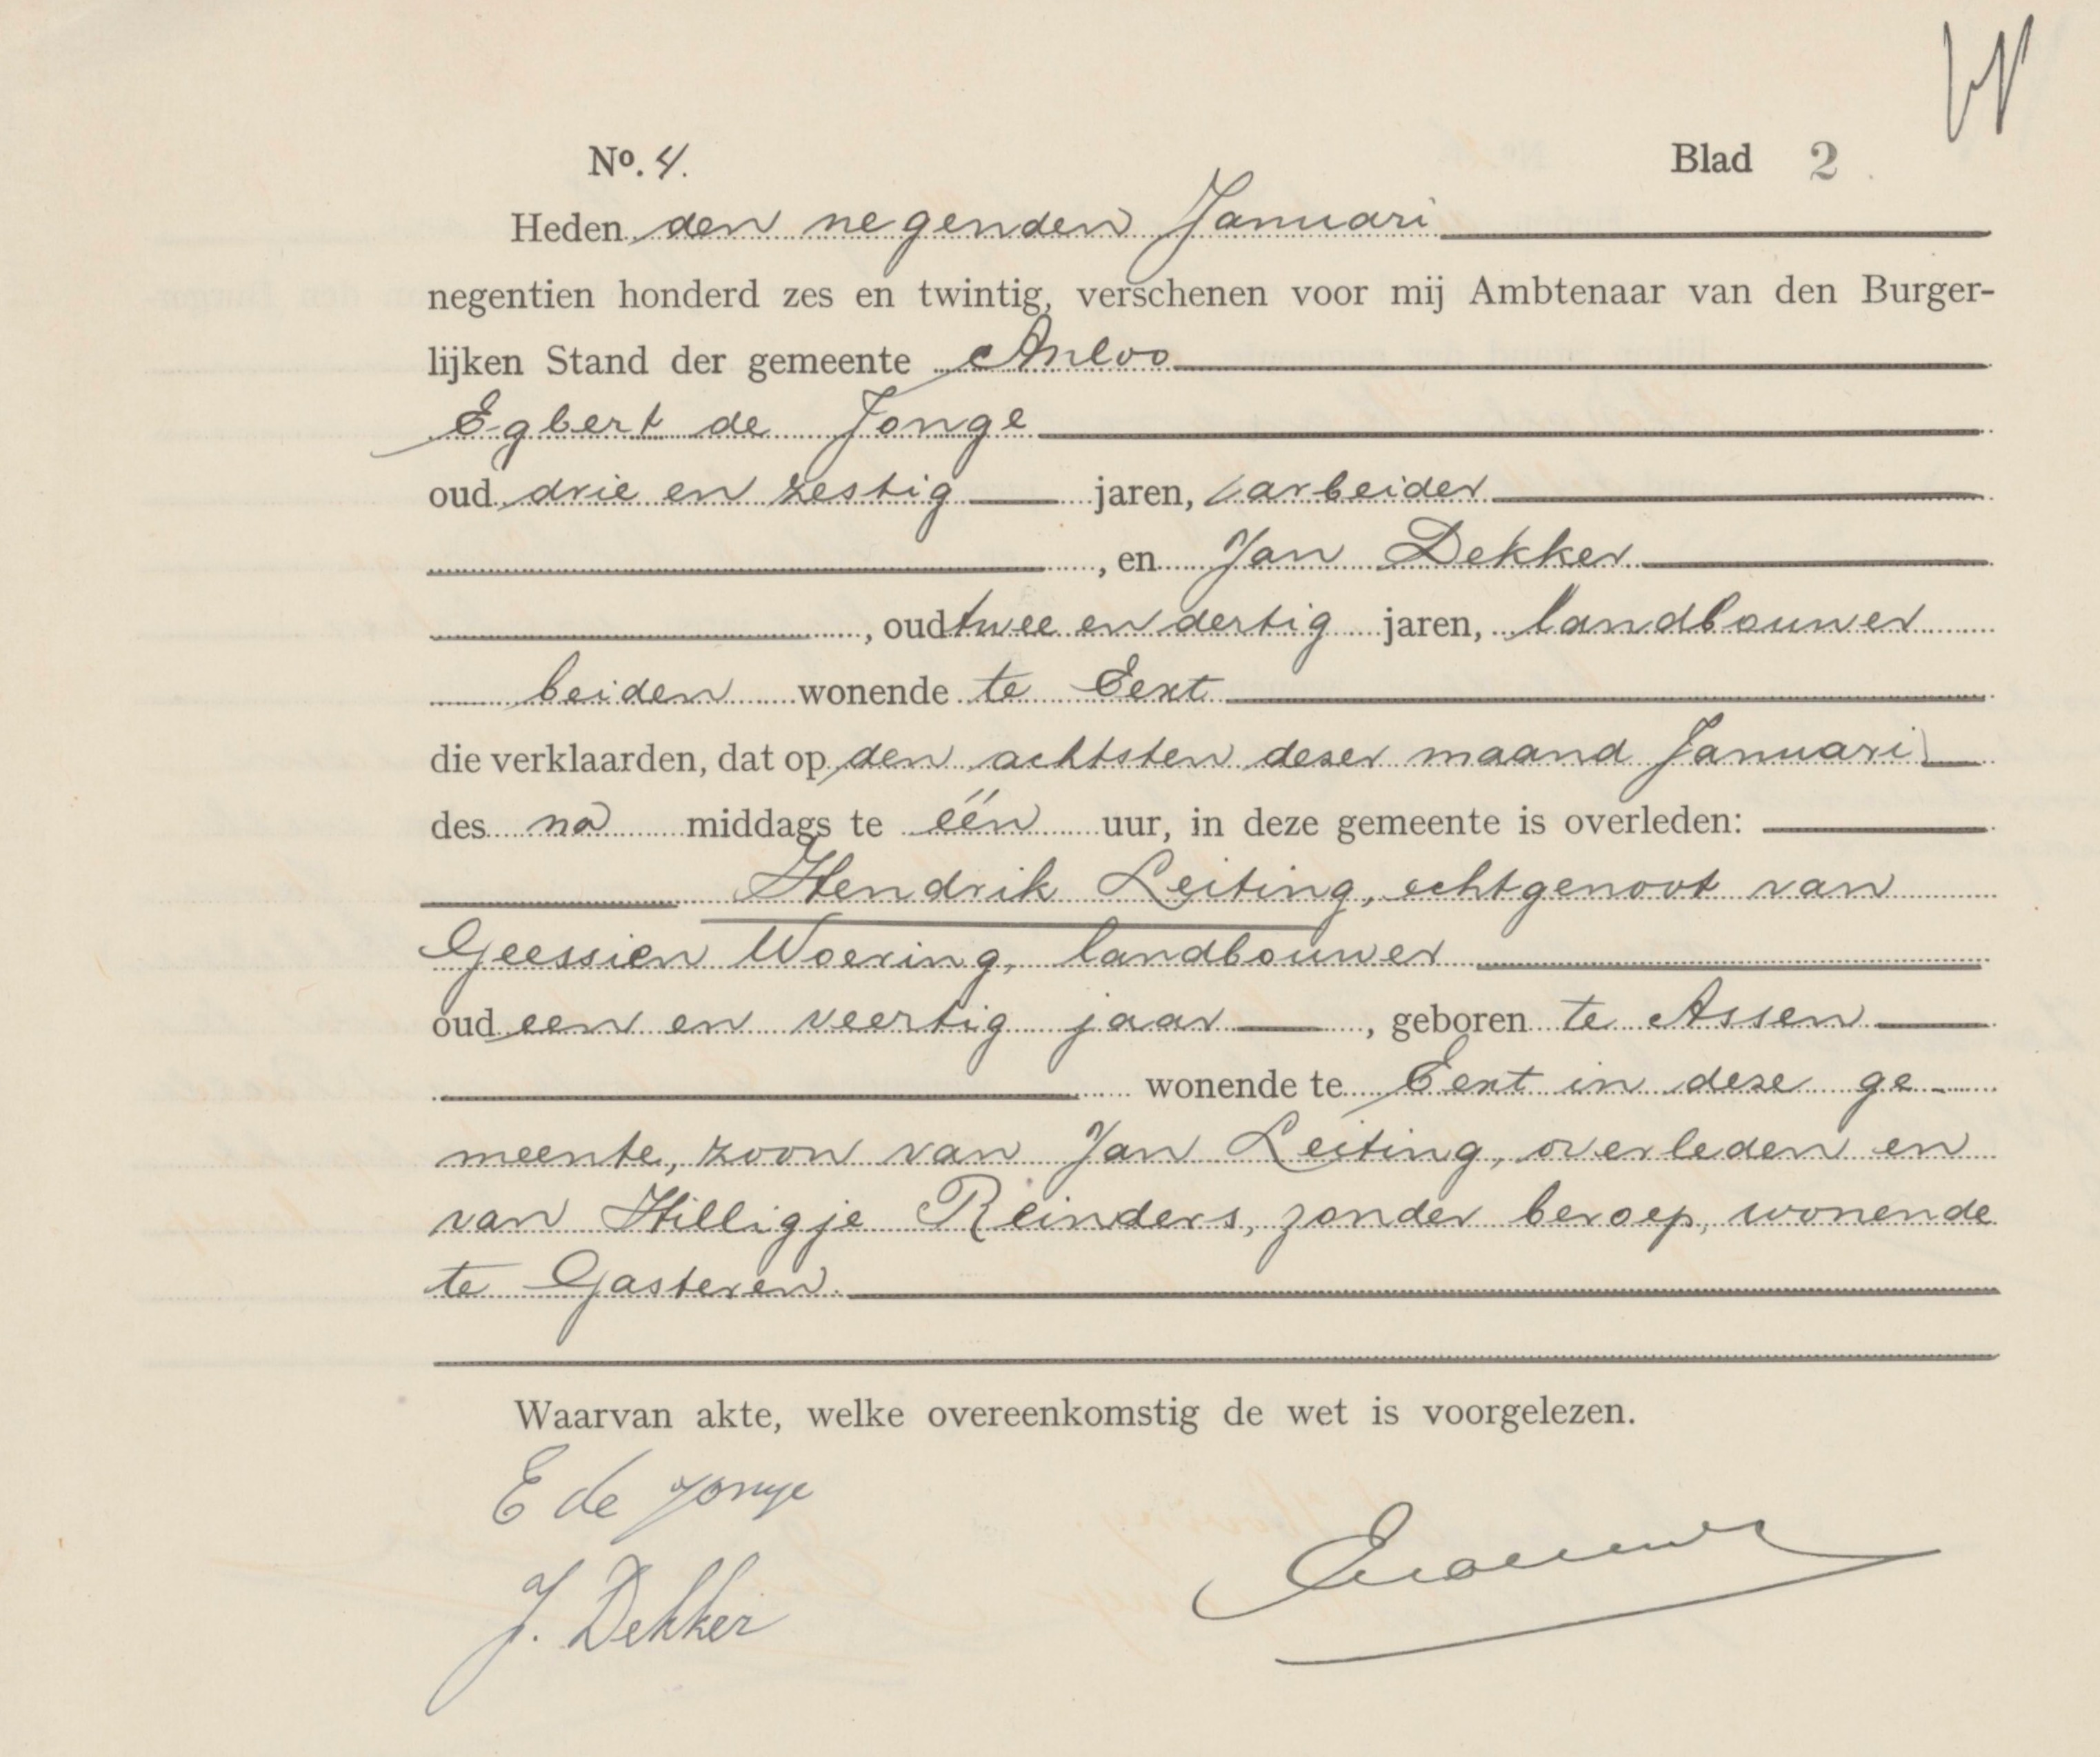 Nº. 4. Blad 2
Heden den negenden Januari
negentien honderd zes en twintig, verschenen voor mij Ambtenaar van den Burger-
lijken Stand der gemeente Anloo
Egbert de Jonge
oud drie en zestig jaren, arbeider
, en Jan Dekker
, oud twee en dertig jaren, landbouwer
beiden wonende te Eext
die verklaarden, dat op den achtsten dezer maand Januari
des na middags te één uur, in deze gemeente is overleden:
Hendrik Leiting, echtgenoot van
Geessien Woering, landbouwer
oud een en veertig jaar, geboren te Assen
wonende te Eext in deze ge-
meente, zoon van Jan Leiting, overleden en
van Hilligje Reinders, zonder beroep, wonende
te Gasteren.
Waarvan akte, welke overeenkomstig de wet is voorgelezen.
E de Jonge
J. Dekker